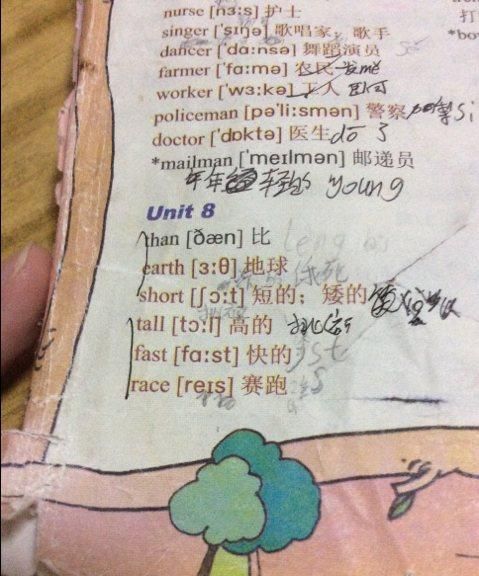 nurse [nɜ:s] 护士
singer ['sɪŋə] 歌唱家，歌手
dancer ['dɑ:nsə] 舞蹈演员
farmer ['fɑ:mə] 农民
worker ['wɜ:kə] 工人
policeman [pə'li:smən] 警察
doctor ['dɒktə] 医生
*mailman ['meɪlmən] 邮递员
轻的 young
Unit 8
than [ðæn] 比
earth [ɜ:θ] 地球 饿死
short [ʃɔ:t] 短的；矮的
tall [tɔ:l] 高的
fast [fɑ:st] 快的
race [reɪs] 赛跑
打
*bo